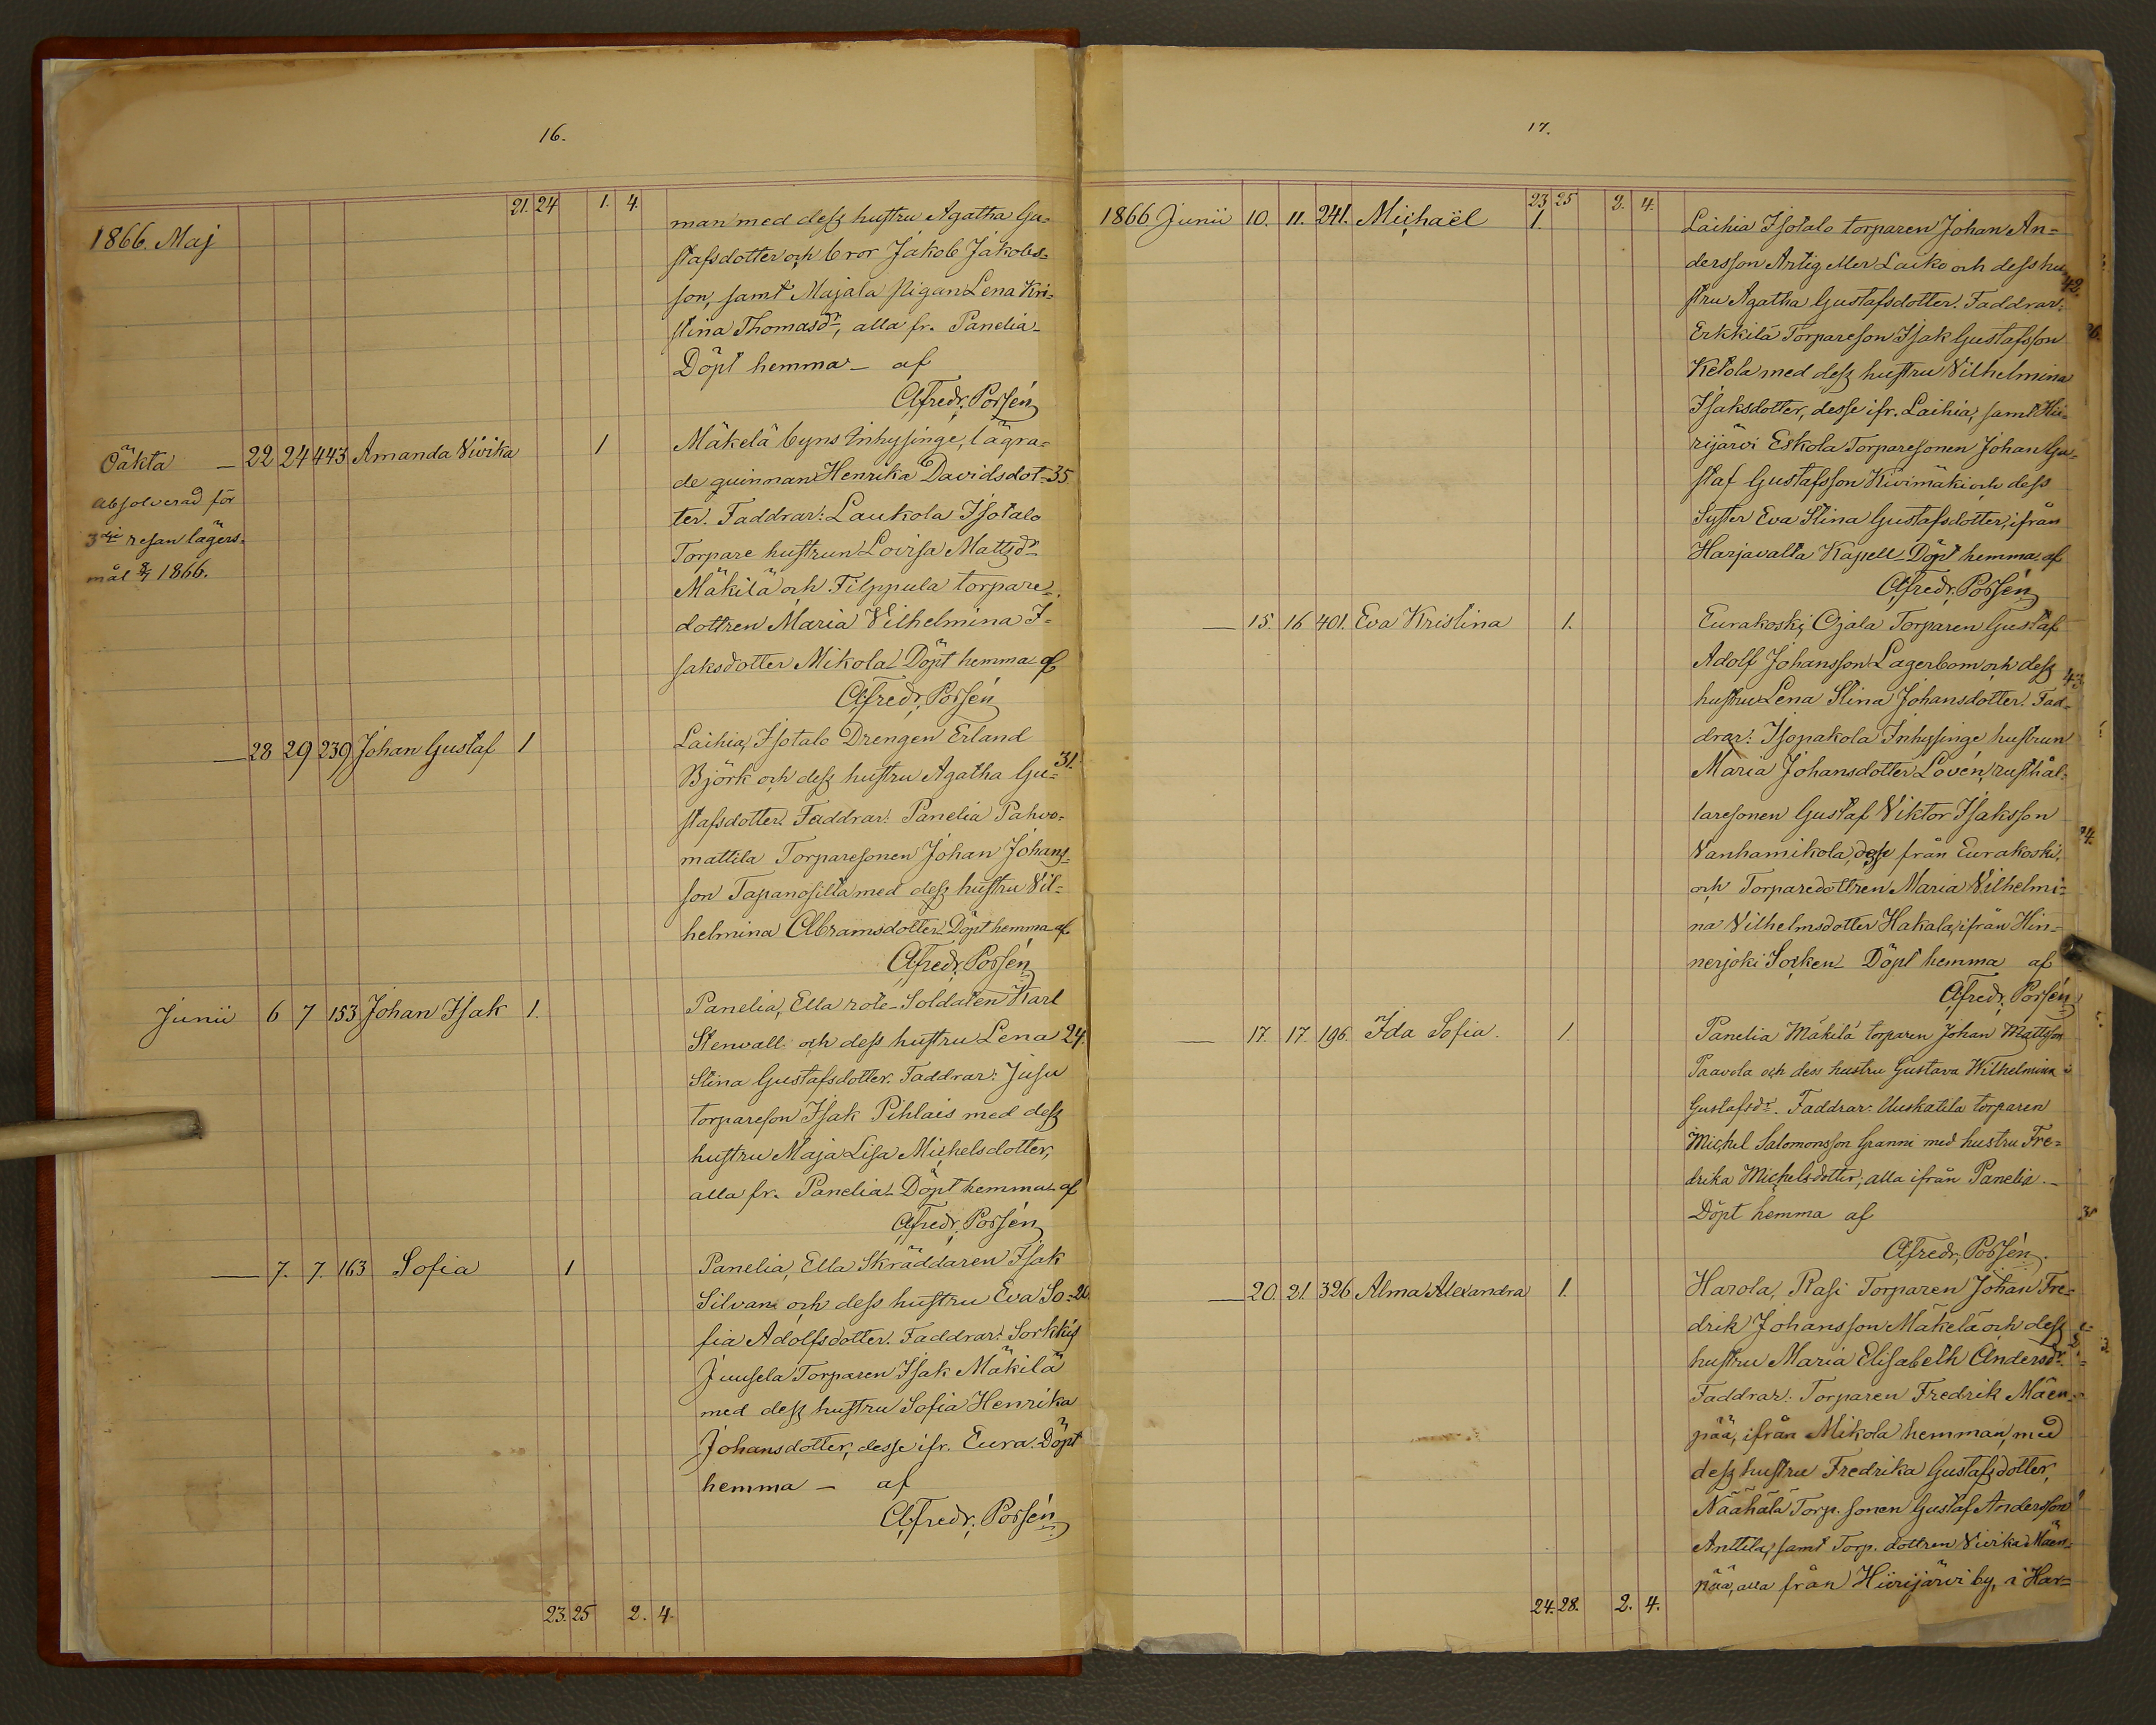 16.
21. 24 1. 4.
1866. Maj
man med dess hustru Agatha Gu-
stafsdotter och bror Jakob Jakobs-
son, samt Majala pigan Lena Kri-
stina Thomasdr, alla fr. Panelia
Döpt hemma — af
A. Fredr. Porsén
Oäkta — 22 24 443 Amanda Vivika 1
absolverad för
3dje resan lägers-
mål 8/7 1866.
Mäkelä byns Inhysinge, lägra-
de quinnan Henrika Davidsdot- 35
ter. Faddrar: Laukola Isotalo
Torpare hustrun Lovisa Mattsdr
Mäkilä och Filppula torpare-
dottren Maria Vilhelmina I-
saksdotter Mikola. Döpt hemma af
A. Fredr. Porsén
— 28 29 239 Johan Gustaf 1
Laihia, Isotalo Drengen Erland
Björk och dess hustru Agatha Gu- 31.
stafsdotter. Faddrar: Panelia Pahvo-
mattila Torparesonen Johan Johans-
son Tapanosilta med dess hustru Vil-
helmina Abramsdotter. Döpt hemma af
A. Fredr. Porsén
Junii 6 7 153 Johan Isak 1.
Panelia, Ella rote-Soldaten Karl
Stenvall och dess hustru Lena 24.
Stina Gustafsdotter. Faddrar: Jusu
torpareson Isak Pihlais med dess
hustru Maja Lisa Michelsdotter,
alla fr. Panelia. Döpt hemma af
A. Fredr. Porsén
— 7. 7. 163 Sofia 1
Panelia, Ella Skräddaren Isak
Silvan och dess hustru Eva So- 20
fia Adolfsdotter. Faddrar: Sorkkis
Juusela Torparen Isak Mäkilä
med dess hustru Sofia Henrika
Johansdotter, desse ifr. Eura. Döpt
hemma — af
A. Fredr. Porsén
23. 25 2. 4.
17.
23 25 2. 4.
1866 Junii 10. 11. 241. Michaël 1.
Laihia Isotalo torparen Johan An-
dersson Artig eller Laiko och dess hu- 42.
stru Agatha Gustafsdotter. Faddrar:
Erkkilä Torpareson Isak Gustafsson
Ketola med dess hustru Vilhelmina
Isaksdotter, desse ifr. Laihia, samt Hii-
rijärvi Eskola Torparesonen Johan Gu-
staf Gustafsson Kivimäki och dess
Syster Eva Stina Gustafsdotter, ifrån
Harjavalta Kapell. Döpt hemma af
A. Fredr. Porsén
— 15. 16 401. Eva Kristina 1.
Eurakoski, Ojala Torparen Gustaf
Adolf Johansson Lagerbom och dess 43
hustru Lena Stina Johansdotter. Fad-
drar: Isopakola Inhysinge hustrun
Maria Johansdotter Lovén, rusthål-
laresonen Gustaf Viktor Isaksson
Vanhamikola, desse från Eurakoski,
och Torparedottren Maria Vilhelmi-
na Vilhelmsdotter Hakala, ifrån Hin-
nerjoki Socken. Döpt hemma af
A. Fredr. Porsén
— 17. 17. 196. Ida Sofia. 1.
Panelia Mäkilä torparen Johan Mattsson
Paavola och dess hustru Gustava Wilhelmina
Gustafsdr. Faddrar: Uuskatila torparen
Michel Salomonsson Granni med hustru Fre-
drika Michelsdotter, alla ifrån Panelia.—
Döpt hemma af
A. Fredr. Porsén.
— 20. 21. 326 Alma Alexandra 1.
Harola, Rasi Torparen Johan Fre-
drik Johansson Mäkelä och dess
hustru Maria Elisabeth Andersdr.
Faddrar: Torparen Fredrik Mäen-
pää, ifrån Mikola hemman, med
dess hustru Fredrika Gustafsdotter,
Näähälä Torp. sonen Gustaf Andersson
Anttila, samt Torp. dottren Vivika Mäen-
pää, alla från Hiirijärvi by, i Har-
24. 28. 2. 4.